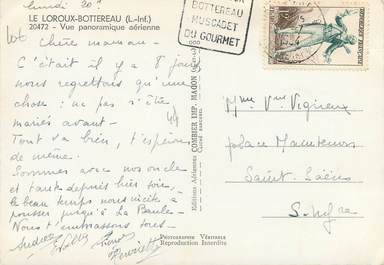 lundi 20h
LE LOROUX-BOTTEREAU (L.-Inf.)
20472 - Vue panoramique aérienne
BOTTEREAU
MUSCADET
DU GOURMET
Chère maman -
C'était il y a 8 jours
nous regrettons qu'une
chose : ne pas s'être
mariés avant -
Tout va bien, t'espérons
de même.
Sommes avec nos oncles
et tante depuis hier soir,
le beau temps nous incite à
pousser jusqu'à La Baule -
Nous t'embrassons tous -
Henriette
44
Editions Aériennes COMBIER IMP. MACON
PHOTOGRAPHIE VÉRITABLE
Reproduction Interdite
Mme Vve Vigneux
place Maintenon
Saint-Saëns
S. Infre